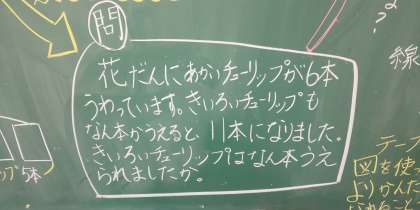 問
花だんにあかいチューリップが6本
うわっています。きいろいチューリップも
なん本かうえると、11本になりました。
きいろいチューリップはなん本うえ
られましたか。
?
線
テープ
図を使っ
よりかんた
いれること
プ 5本